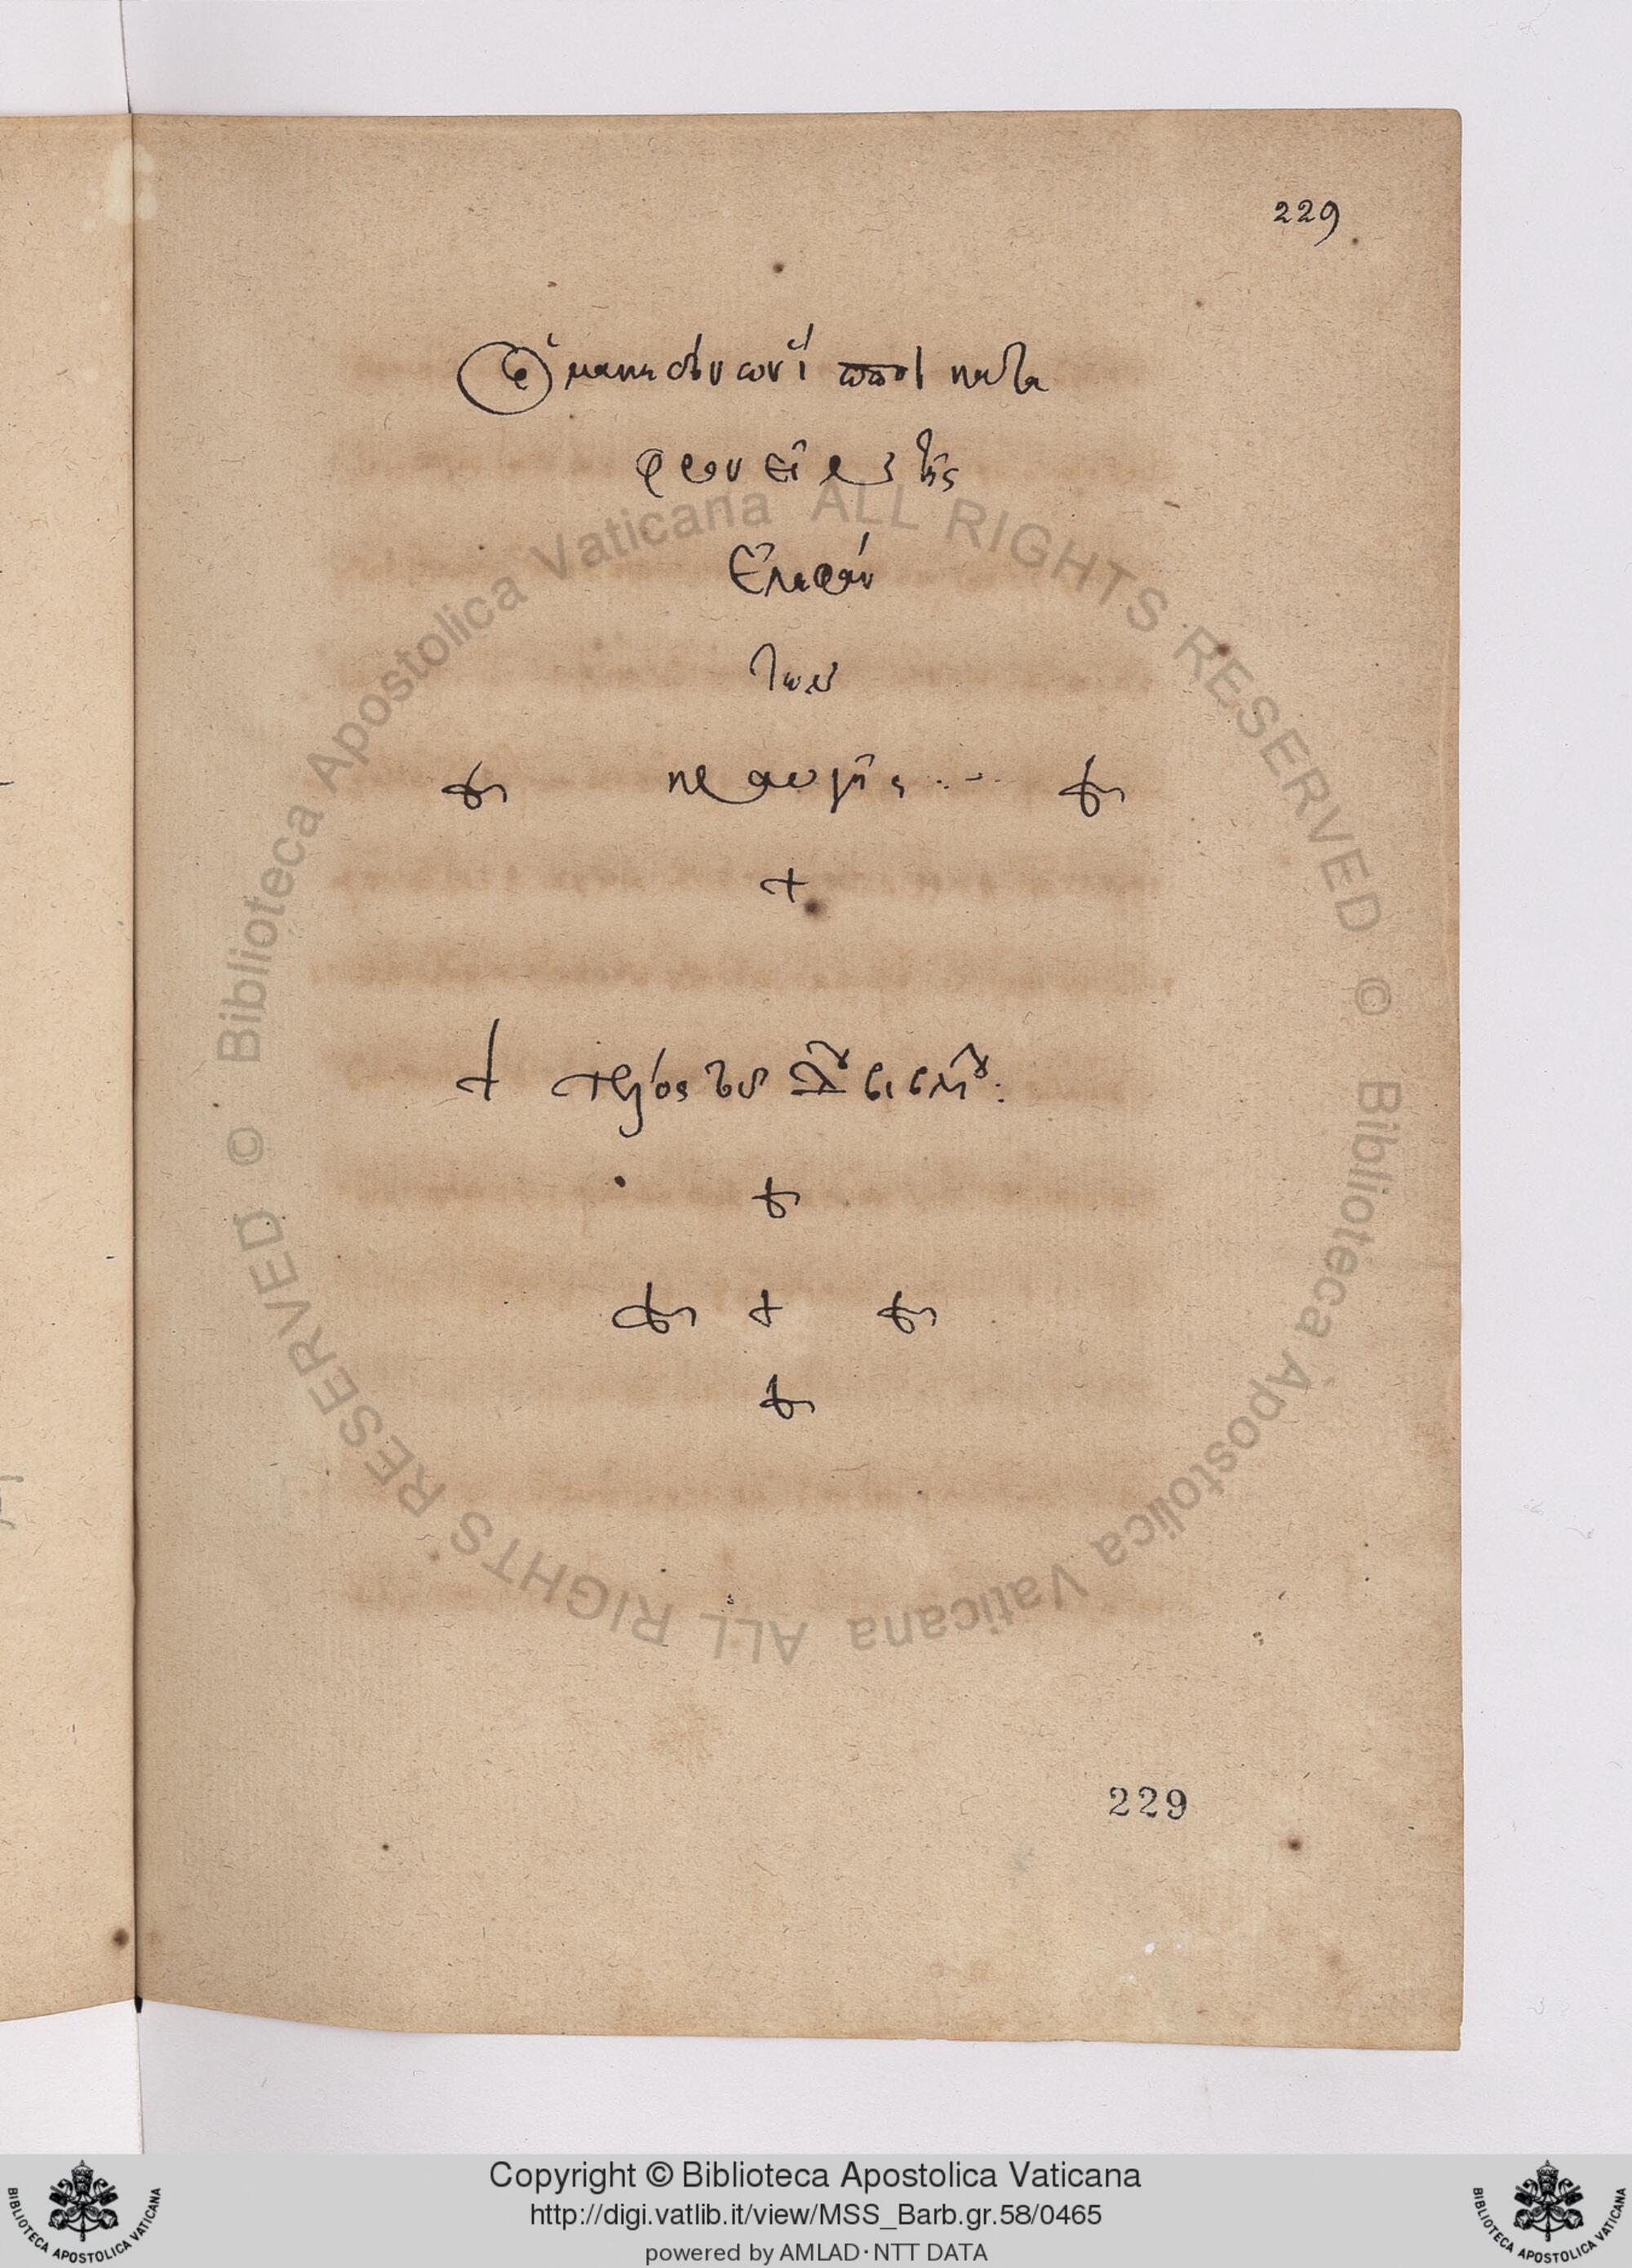 229
Ὁ μακεδόνων ἵππος κατα
φρονεῖ καὶ τῆς
Ἐλεφάν
των
κραυγῆς
+
+ τέλος τοῦ βιβλίου:
229
© Biblioteca Apostolica Vaticana ALL RIGHTS RESERVED © Biblioteca Apostolica Vaticana ALL RIGHTS RESERVED
Copyright © Biblioteca Apostolica Vaticana
http://digi.vatlib.it/view/MSS_Barb.gr.58/0465
powered by AMLAD·NTT DATA
BIBLIOTECA APOSTOLICA VATICANA
BIBLIOTECA APOSTOLICA VATICANA